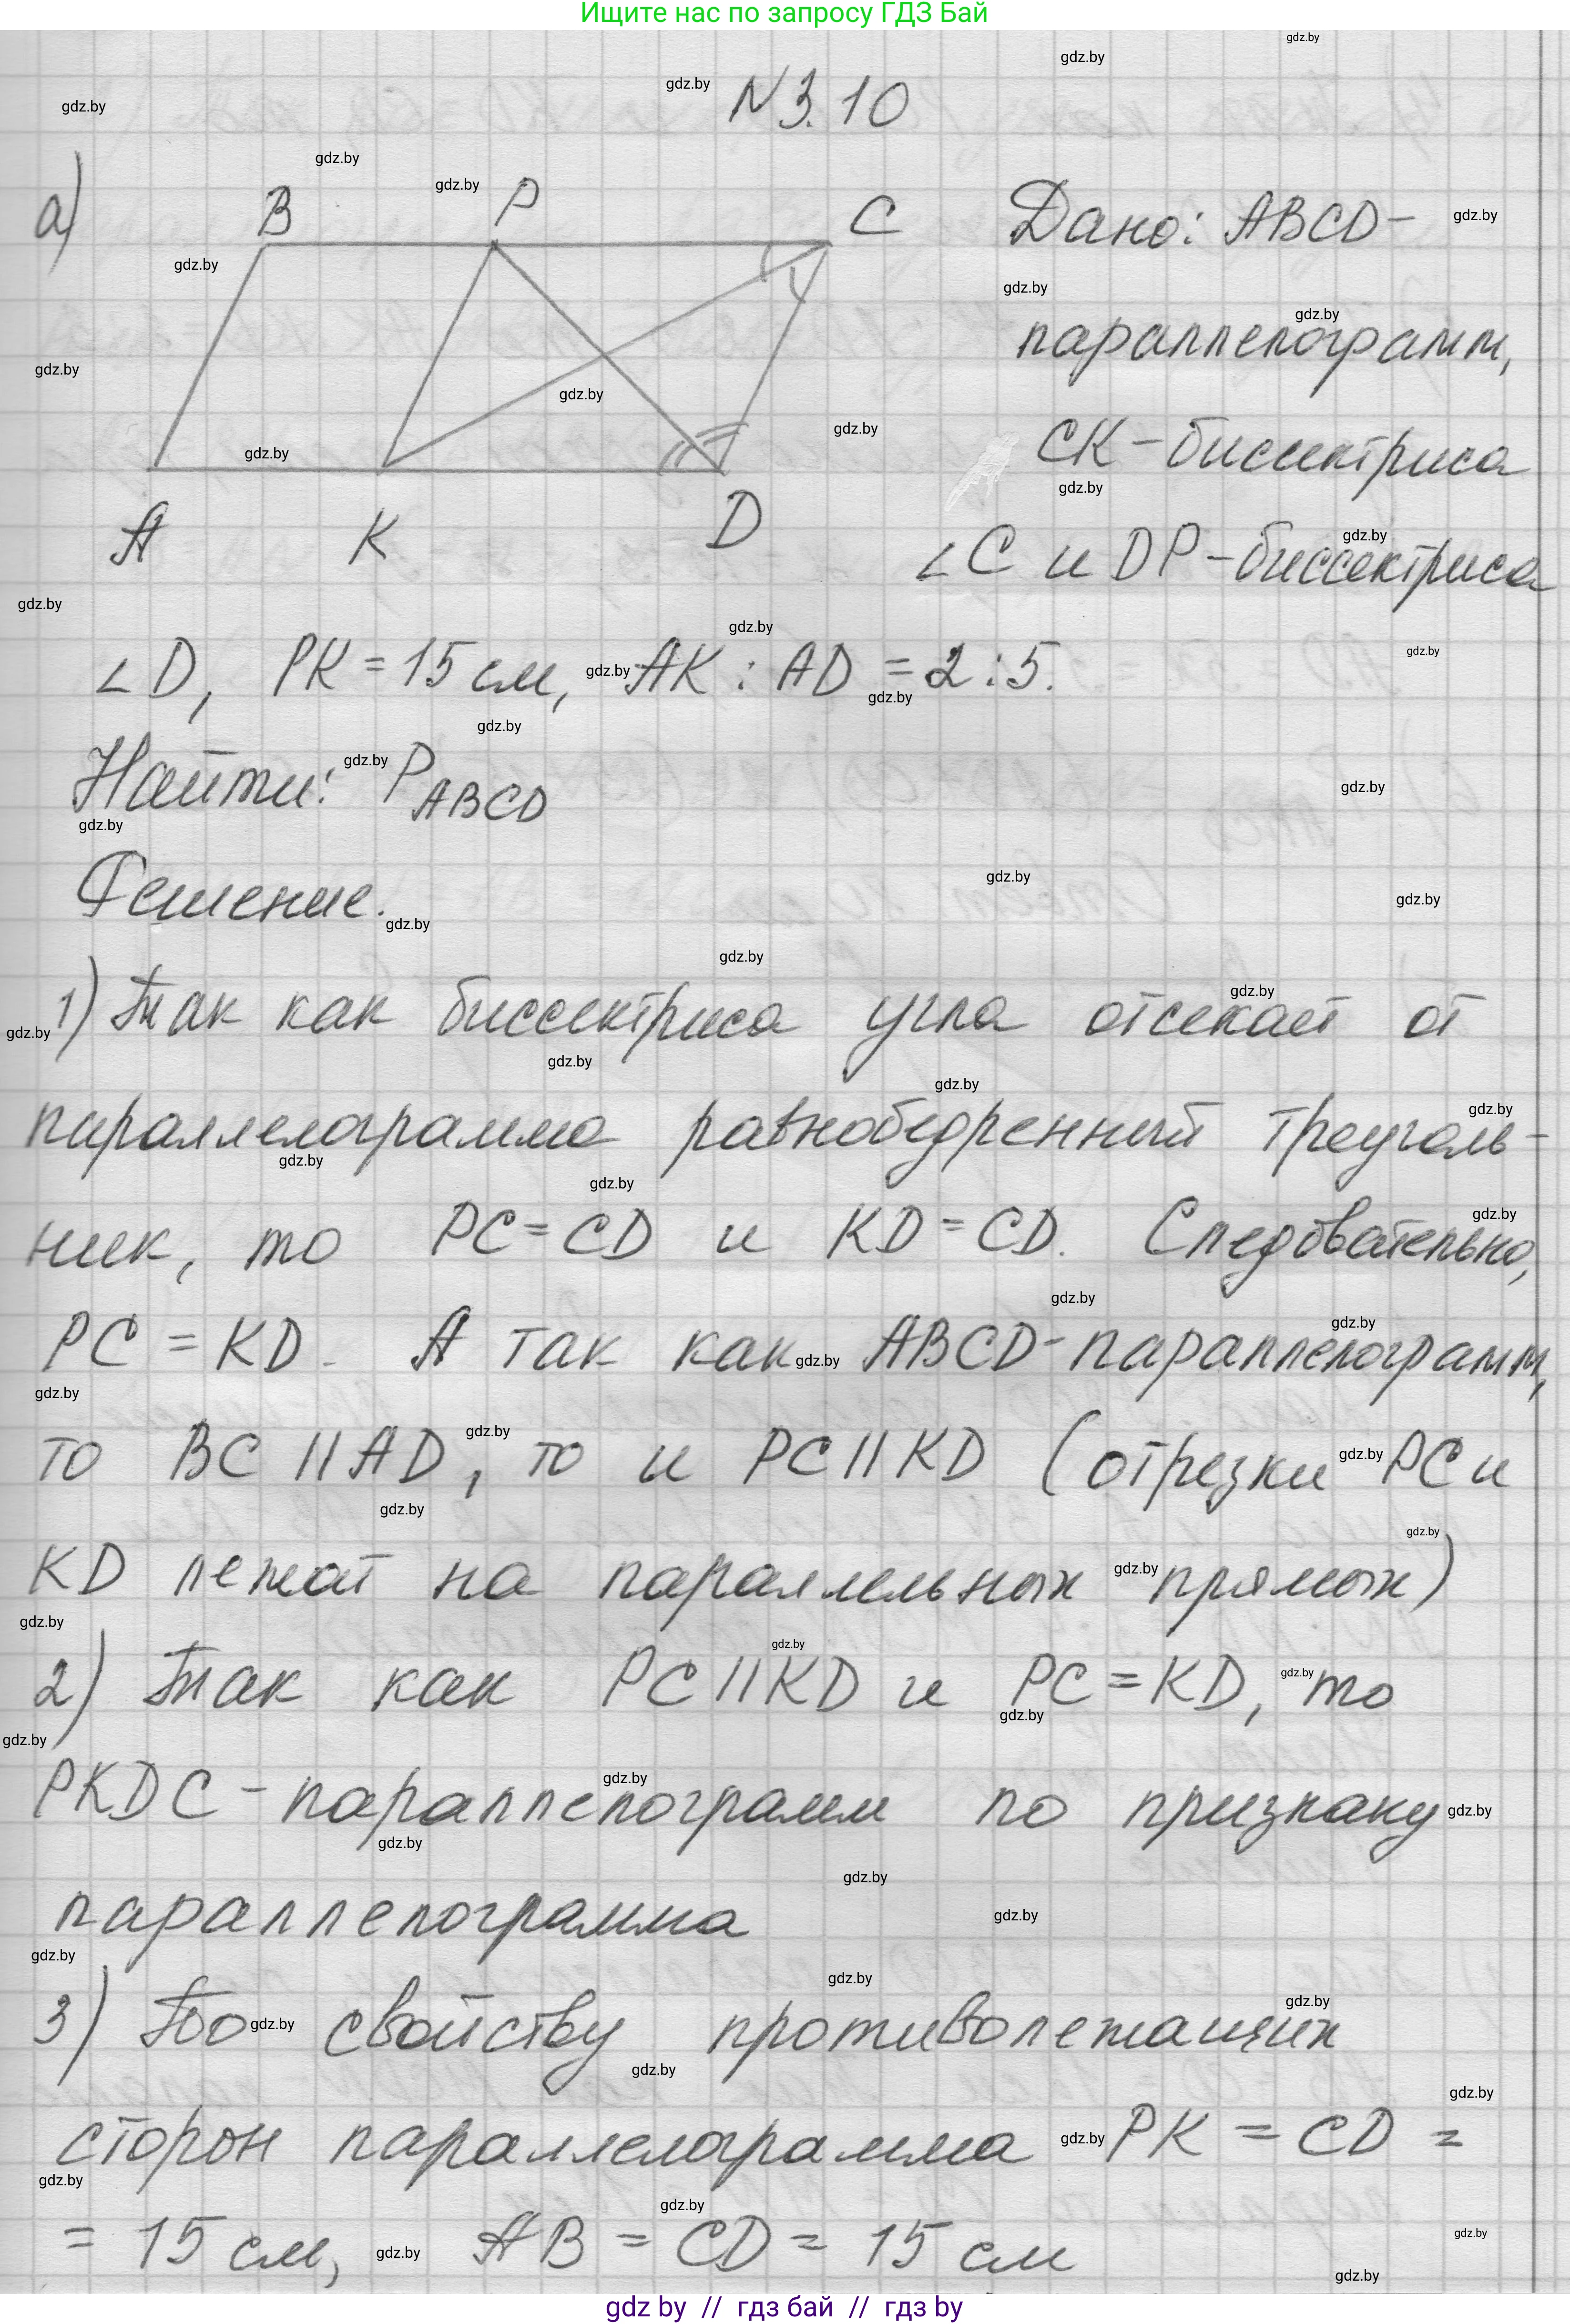 Ищите нас по запросу ГДЗ Бай
N 3.10
а)
B P C
A K D
Дано: ABCD-
параллелограмм,
CK-биссектриса
∠C и DP-биссектриса
∠D, PK = 15 см, AK : AD = 2 : 5.
Найти: P ABCD
Решение.
1) Так как биссектриса угла отсекает от
параллелограмма равнобедренный треуголь-
ник, то PC = CD и KD = CD. Следовательно,
PC = KD. А так как ABCD-параллелограмм,
то BC || AD, то и PC || KD (отрезки PC и
KD лежат на параллельных прямых)
2) Так как PC || KD и PC = KD, то
PKDC-параллелограмм по признаку
параллелограмма
3) По свойству противолежащих
сторон параллелограмма PK = CD =
= 15 см, AB = CD = 15 см
gdz by // гдз бай // гдз by